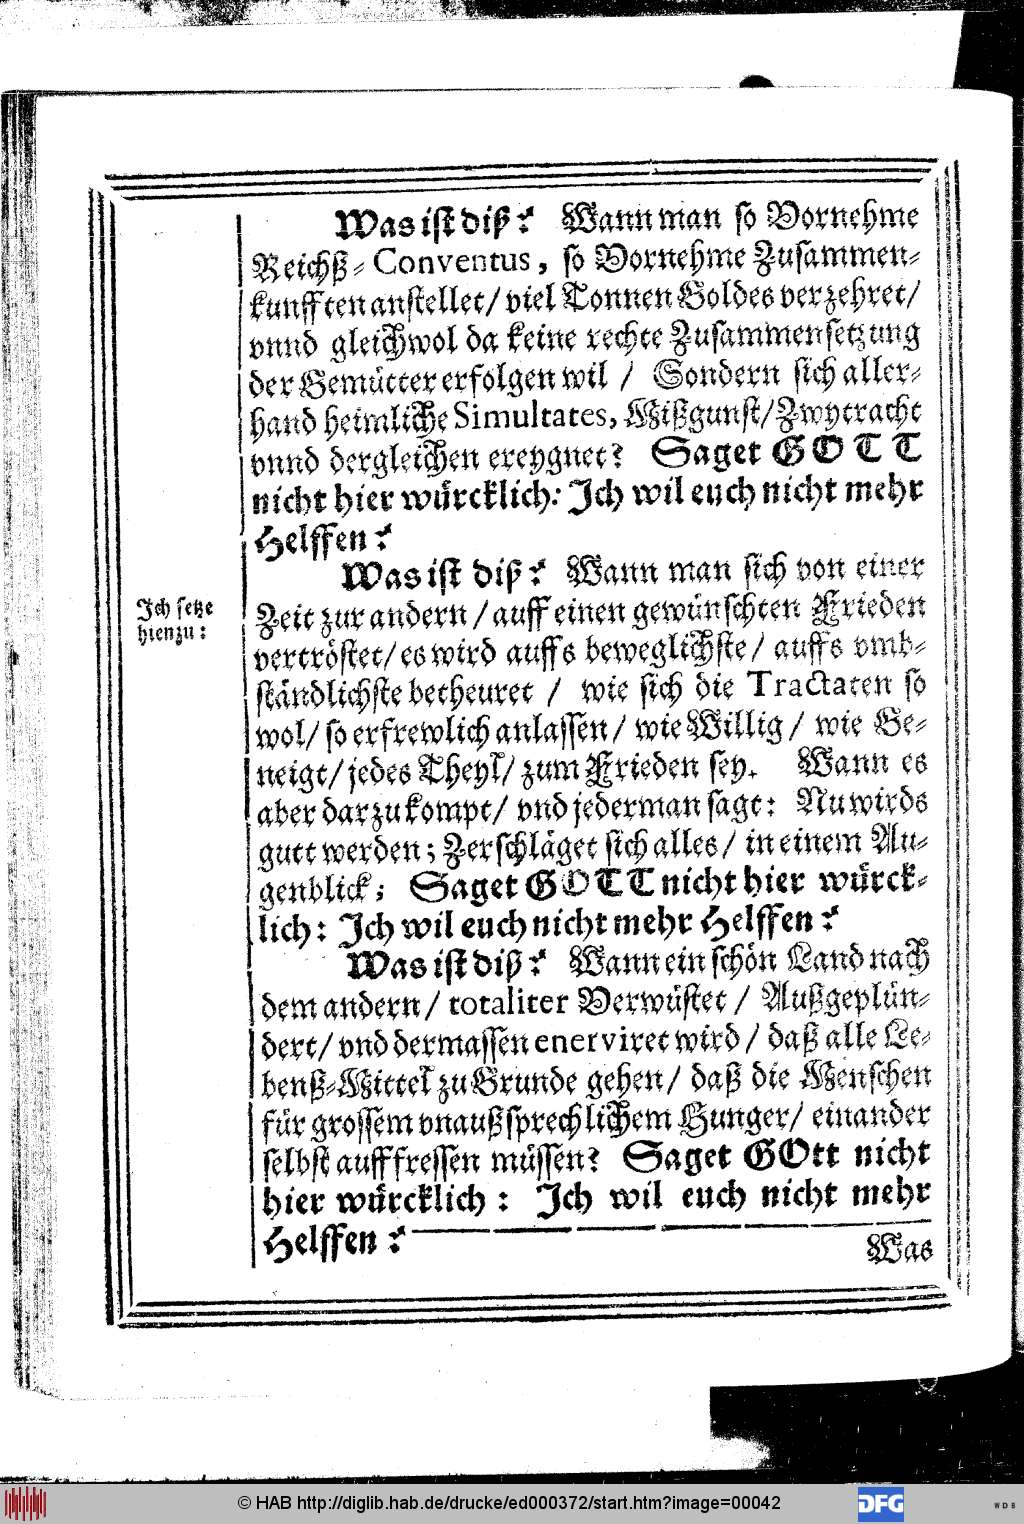 Was ist diß? Wann man so Vornehme
Reichß-Conventus, so Vornehme Zusammen-
kunfften anstellet/ viel Tonnen Goldes verzehret/
vnnd gleichwol da keine rechte Zusammensetzung
der Gemütter erfolgen wil / Sondern sich aller-
hand heimliche Simultates, Mißgunst/ Zwytracht
vnnd dergleichen ereygnet? Saget GOTT
nicht hier würcklich: Ich wil euch nicht mehr
Helffen?
Was ist diß? Wann man sich von einer
Zeit zur andern / auff einen gewünschten Frieden
vertröstet/ es wird auffs beweglichste/ auffs vmb-
ständlichste betheuret / wie sich die Tractaten so
wol/ so erfrewlich anlassen/ wie Willig/ wie Ge-
neigt/ jedes Theyl/ zum Frieden sey. Wann es
aber darzu kompt/ vnd jederman sagt: Nu wirds
gutt werden; Zerschläget sich alles/ in einem Au-
genblick; Saget GOTT nicht hier würck-
lich: Ich wil euch nicht mehr Helffen?
Was ist diß? Wann ein schön Land nach
dem andern / totaliter Verwüstet / Außgeplün-
dert/ vnd dermassen enerviret wird / daß alle Le-
benß-Mittel zu Grunde gehen/ daß die Menschen
für grossem vnaußsprechlichem Hunger/ einander
selbst aufffressen müssen? Saget GOtt nicht
hier würcklich: Ich wil euch nicht mehr
Helffen?
Was
Ich setze
hienzu:
© HAB http://diglib.hab.de/drucke/ed000372/start.htm?image=00042
DFG
WDB